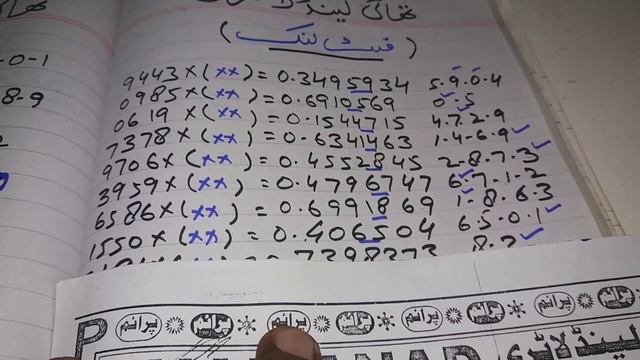 تھائی لینڈ لاٹری
(فیٹ لنک)
0-1
8-9
9443×(××)=0.3495934 5-9-0-4
0985×(××)=0.6910569 0-5
0619×(××)=0.1544715 4-7-2-9
7378×(××)=0.6341463 1-4-6-9✓
9706×(××)=0.4552845 2-8-7-3✓
3959×(××)=0.4796747 6-7-1-2
6586×(××)=0.6991869 1-8-6-3
1550×(××)=0.406504 6-5-0-1✓
7398373 8-2✓
پرائم پرائم پرائم پرائم پرائم پرائم
P